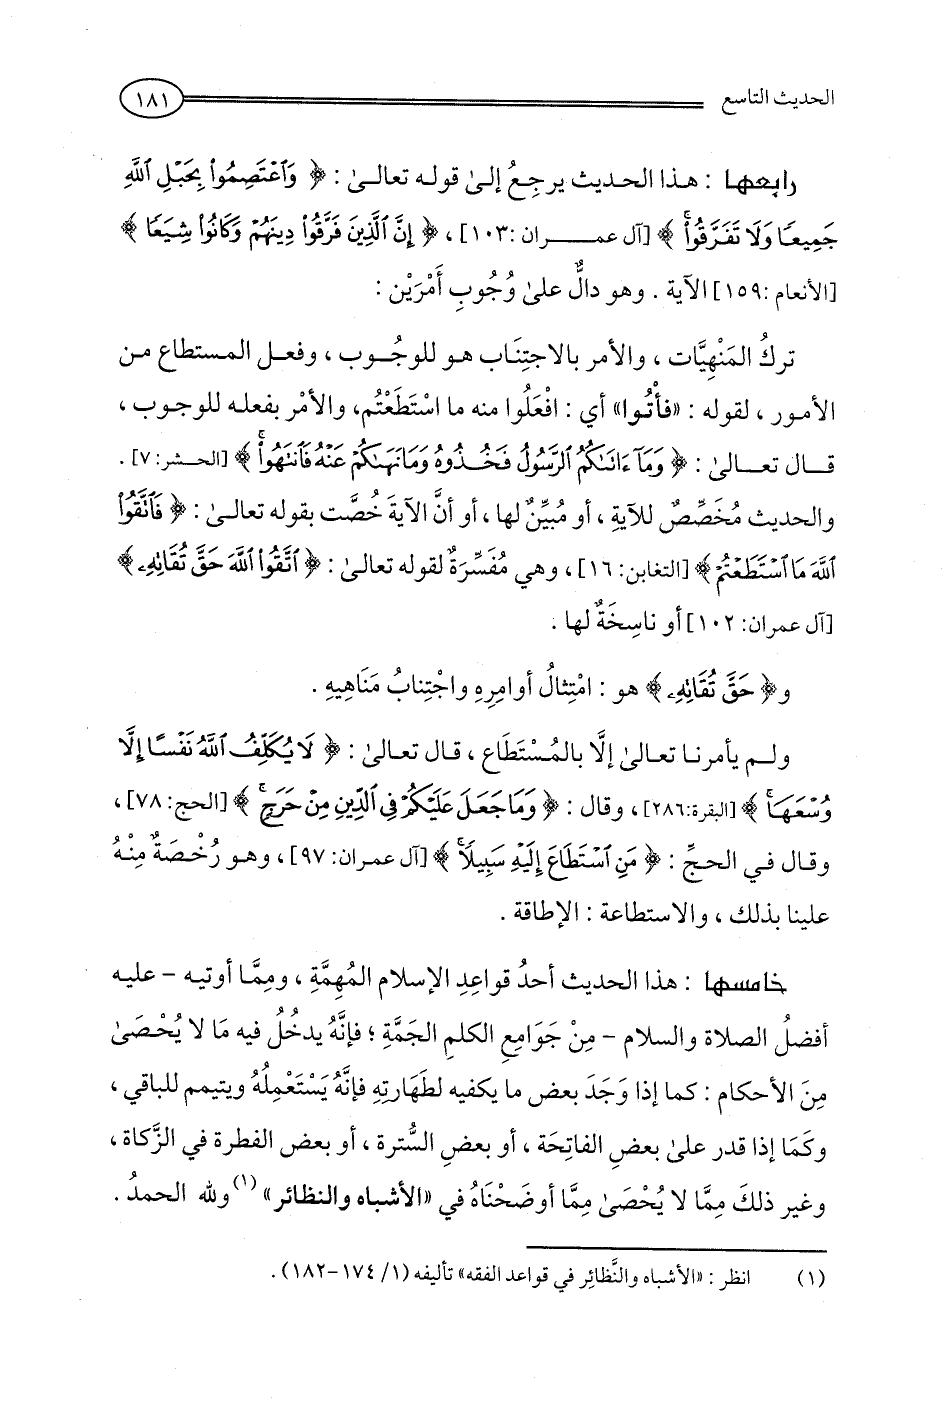 الحديث التاسع ١٨١
رابعها : هذا الحديث يرجِعُ إلىٰ قوله تعالىٰ : ﴿ وَٱعْتَصِمُوا۟ بِحَبْلِ ٱللَّهِ
جَمِيعًا وَلَا تَفَرَّقُوا۟ۚ ﴾ [آل عمـــــران :١٠٣] ، ﴿ إِنَّ ٱلَّذِينَ فَرَّقُوا۟ دِينَهُمْ وَكَانُوا۟ شِيَعًا ﴾
[الأنعام :١٥٩] الآية . وهو دالٌّ علىٰ وُجُوبِ أَمْرَيْن :
تركُ المَنْهِيَّات ، والأمر بالاجتِنَاب هو للوجُوب ، وفعل المستطاع من
الأمور ، لقوله : «فأْتُوا» أي : افْعَلُوا منه ما اسْتَطَعْتُم، والأمْر بفعله للوجوب ،
قال تعالىٰ : ﴿ وَمَآ ءَاتَىٰكُمُ ٱلرَّسُولُ فَخُذُوهُ وَمَا نَهَىٰكُمْ عَنْهُ فَٱنتَهُوا۟ۚ ﴾ [الحشر: ٧] .
والحديث مُخَصِّصٌ للآيةِ ، أو مُبيِّنٌ لها ، أو أنَّ الآيةَ خُصَّت بقوله تعالىٰ : ﴿ فَٱتَّقُوا۟
ٱللَّهَ مَا ٱسْتَطَعْتُمْ ﴾ [التغابن: ١٦] ، وهي مُفَسِّرَةٌ لقوله تعالىٰ : ﴿ ٱتَّقُوا۟ ٱللَّهَ حَقَّ تُقَاتِهِۦ ﴾
[آل عمران: ١٠٢] أو ناسِخَةٌ لها .
و﴿ حَقَّ تُقَاتِهِۦ ﴾ هو : امْتِثالُ أوامِرِه واجْتِنابُ مَنَاهِيهِ .
ولم يأمرنا تعالىٰ إلَّا بالمُسْتَطَاع ، قال تعالىٰ : ﴿ لَا يُكَلِّفُ ٱللَّهُ نَفْسًا إِلَّا
وُسْعَهَاۚ ﴾ [البقرة:٢٨٦] ، وقال : ﴿ وَمَا جَعَلَ عَلَيْكُمْ فِى ٱلدِّينِ مِنْ حَرَجٍۚ ﴾ [الحج: ٧٨] ،
وقال في الحجِّ : ﴿ مَنِ ٱسْتَطَاعَ إِلَيْهِ سَبِيلًاۚ ﴾ [آل عمران: ٩٧] ، وهو رُخْصَةٌ مِنْهُ
علينا بذلك ، والاستطاعة : الإطاقة .
خامسها : هذا الحديث أحدُ قواعِدِ الإسلام المُهِمَّةِ ، وممَّا أوتيه - عليه
أفضلُ الصلاة والسلام - مِنْ جَوَامِعِ الكلمِ الجَمَّةِ ؛ فإنَّهُ يدخُلُ فيه مَا لا يُحْصَىٰ
مِنَ الأحكام : كما إذا وَجَدَ بعض ما يكفيه لطَهَارتِهِ فإنَّهُ يَسْتَعْمِلُهُ ويتيمم للباقي ،
وكَمَا إذا قدر علىٰ بعضِ الفاتِحَة ، أو بعضِ السُّترة ، أو بعض الفطرة في الزَّكاة ،
وغير ذلكَ مِمَّا لا يُحْصَىٰ مِمَّا أوضَحْنَاهُ في «الأشباه والنظائر» (١) ولله الحمدُ .
(١) انظر : «الأشباه والنَّظائِر في قواعد الفقه» تأليفه (١/ ١٧٤-١٨٢) .